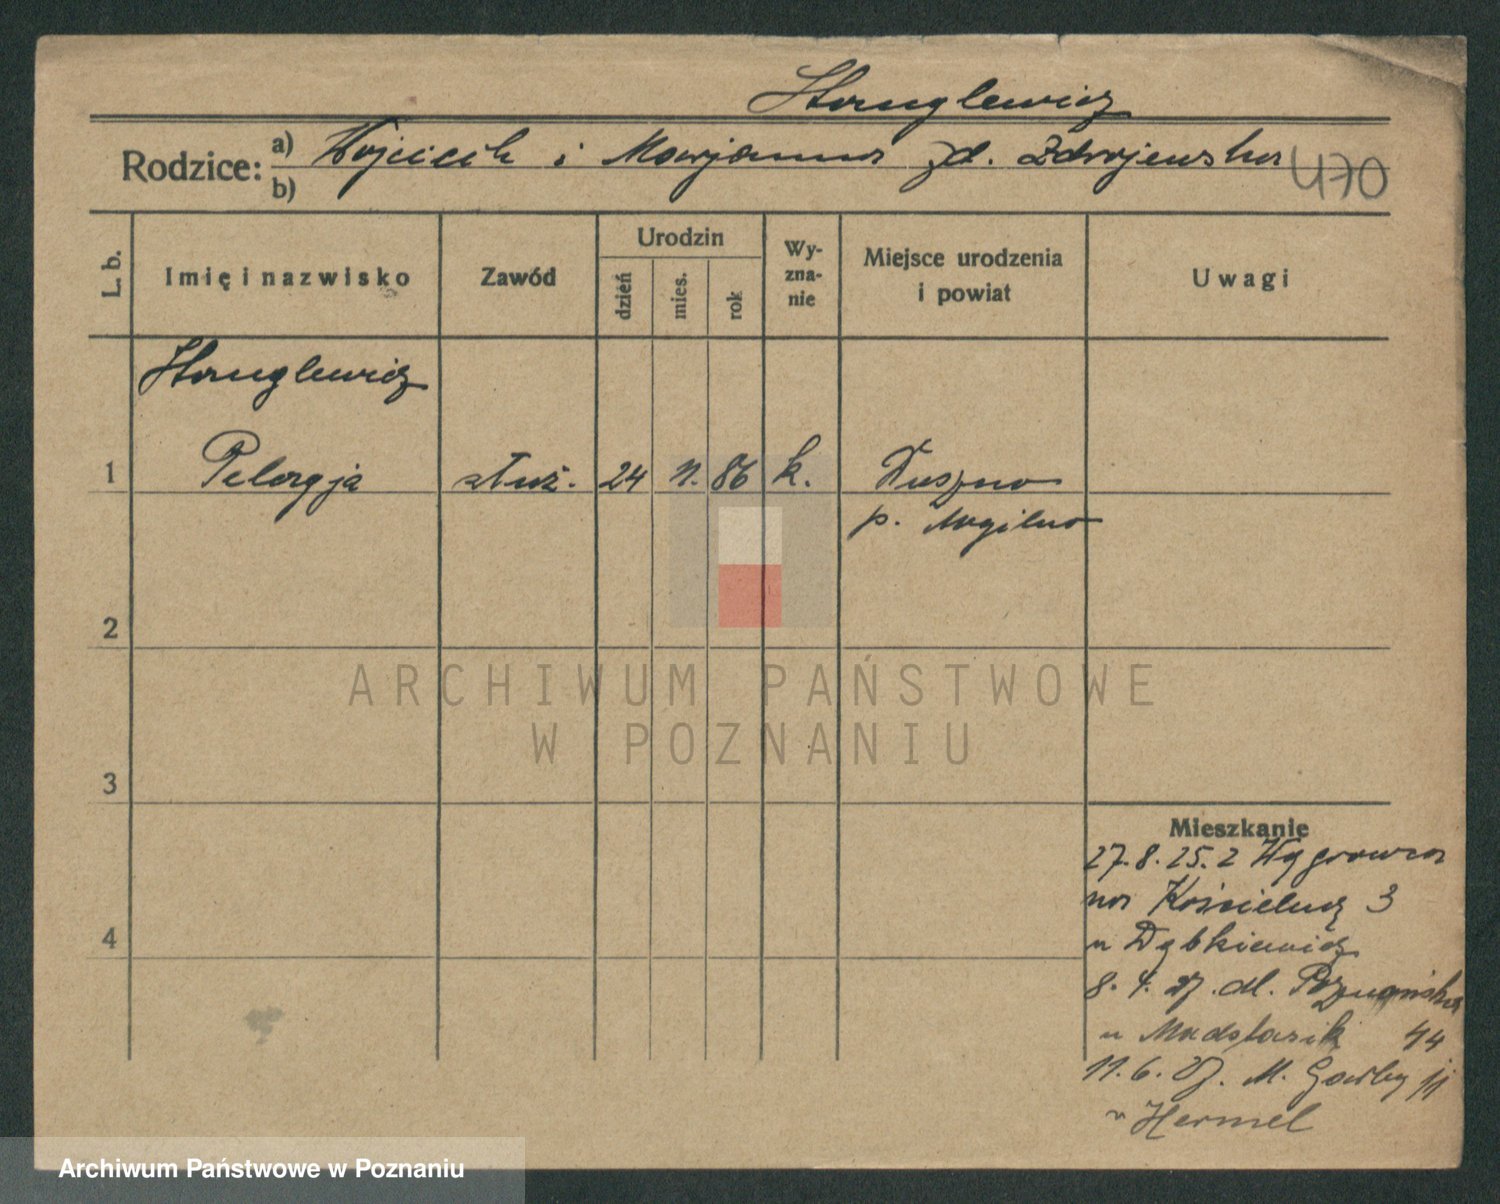 Stanglewicz
Rodzice: a) Wojciech i Marjanna zd. Zdrojewska 470
b)
L. b. Imię i nazwisko Zawód Urodzin dzień mies. rok Wyzna-nie Miejsce urodzenia i powiat Uwagi
Stanglewicz
1 Pelagja służ. 24 11. 86 k. Duszno
p. Mogilno
2
3
Mieszkanie
27.8.25. z Wągrowca
na Kościelną 3
4
u Dąbkiewicz
8. 4. 27. dl. Poznańska
u 44
11. 6. 27. M. Garbary 11
u Hermel
ARCHIWUM PAŃSTWOWE
W POZNANIU
Archiwum Państwowe w Poznaniu